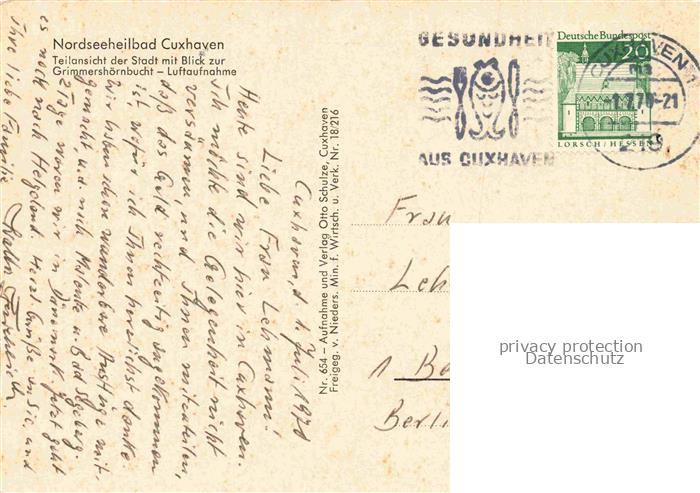 Nordseeheilbad Cuxhaven
Teilansicht der Stadt mit Blick zur
Grimmershörnbucht — Luftaufnahme
GESUNDHEIT
AUS CUXHAVEN
CUXHAVEN
-1.7.70-21
Deutsche Bundespost
20
LORSCH/HESSEN
Cuxhaven, d. 1. Juli 1970
Liebe Frau Lehmann!
Heute sind wir hier in Cuxhaven.
Ich möchte die Gelegenheit nicht
versäumen, und Ihnen mitteilen,
daß das Geld rechtzeitig angekommen
ist, wofür ich Ihnen herzlichst danke.
Wir haben schon wunderbare Ausflüge mit-
gemacht, u. a. nach Malente u. Bad Segeberg.
2 Tage waren wir in Dänemark. Jetzt geht
es noch nach Helgoland. Herzl. Grüße an Sie, und
Ihre liebe Familie
Nr. 654 – Aufnahme und Verlag Otto Schulze, Cuxhaven
Freigeg. v. Nieders. Min. f. Wirtsch. u. Verk. Nr. 18/216
Frau
Leh
1 Be
Berlin
privacy protection
Datenschutz